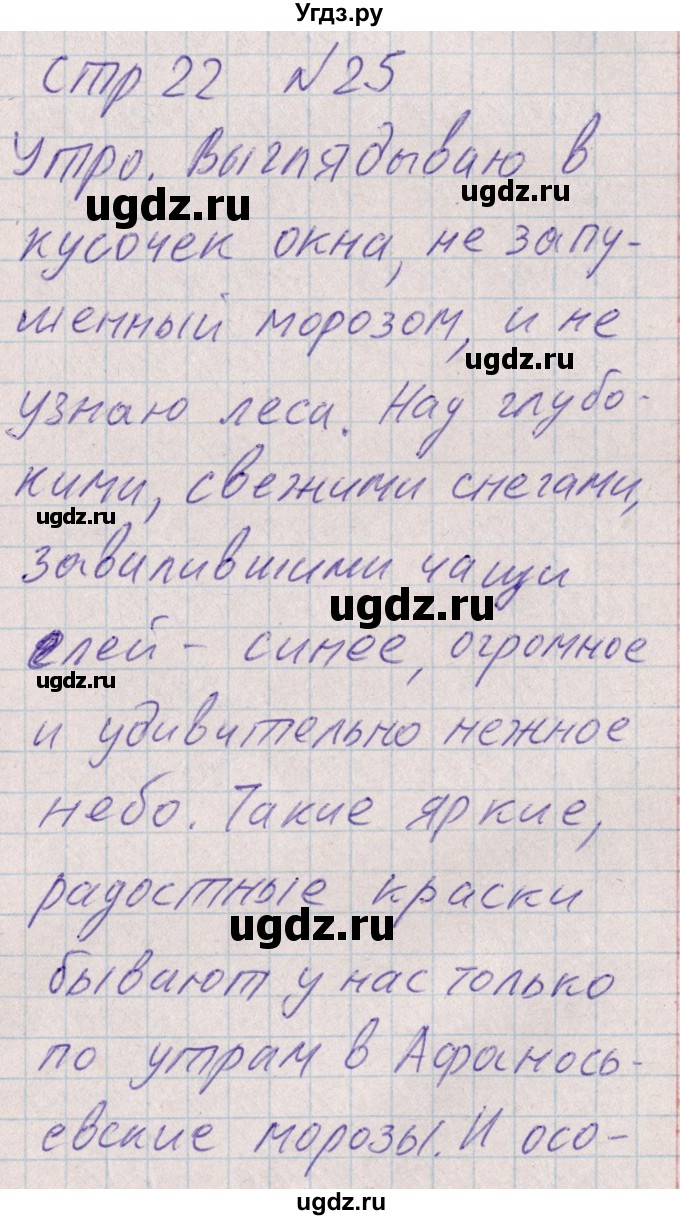 Угдз.ру
Стр 22 №25
Утро. Выглядываю в
кусочек окна, не запу-
шенный морозом, и не
узнаю леса. Над глубо-
кими, свежими снегами,
завалившими чащи
елей - синее, огромное
и удивительно нежное
небо. Такие яркие,
радостные краски
бывают у нас только
по утрам в Афанось-
евские морозы. И осо-
ugdz.ru
ugdz.ru
ugdz.ru
ugdz.ru
ugdz.ru
ugdz.ru
ugdz.ru
ugdz.ru